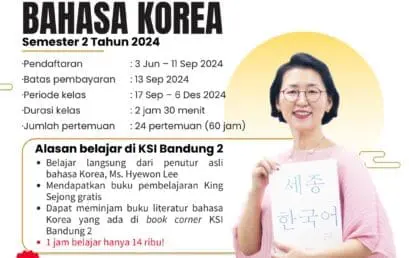 BAHASA KOREA
Semester 2 Tahun 2024
·Pendaftaran : 3 Jun – 11 Sep 2024
·Batas pembayaran : 13 Sep 2024
·Periode kelas : 17 Sep – 6 Des 2024
·Durasi kelas : 2 jam 30 menit
·Jumlah pertemuan : 24 pertemuan (60 jam)
Alasan belajar di KSI Bandung 2
• Belajar langsung dari penutur asli
bahasa Korea, Ms. Hyewon Lee
• Mendapatkan buku pembelajaran King
Sejong gratis
• Dapat meminjam buku literatur bahasa
Korea yang ada di book corner KSI
Bandung 2
• 1 jam belajar hanya 14 ribu!
세종
한국어